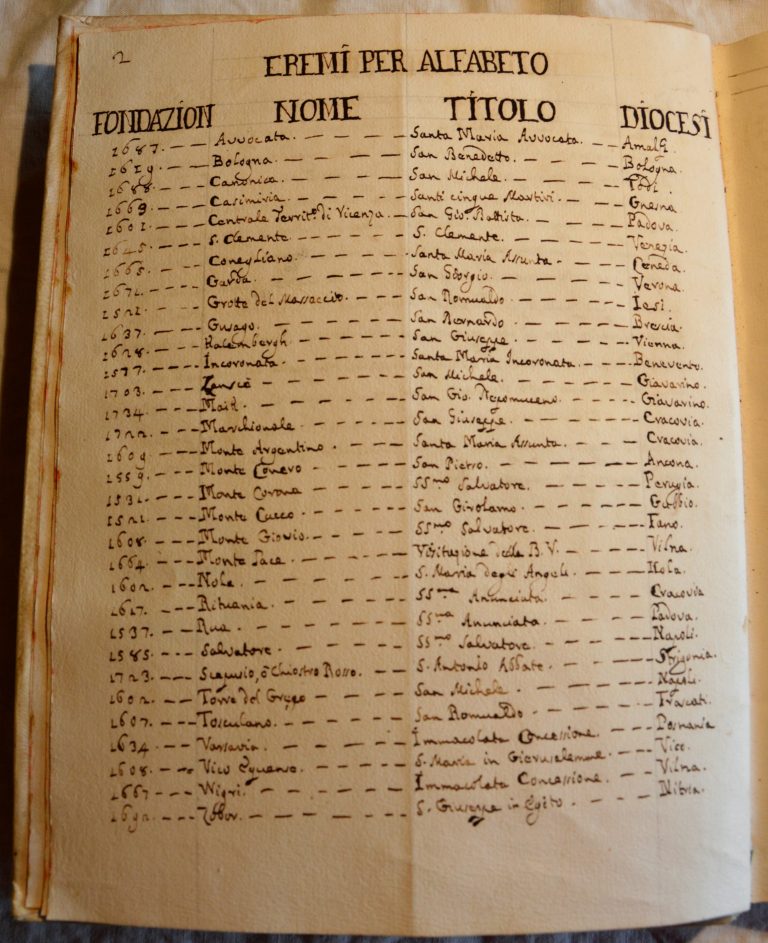 2
EREMI PER ALFABETO
FONDAZION NOME TITOLO DIOCESI
1687. Avvocata. Santa Maria Avvocata. Amalfi.
1619. Bologna. San Benedetto. Bologna.
1688. Canonica. San Michele. Todi.
1663. Casimiria. Santi cinque Martiri. Gnesna
1601. Centrale Territ.° di Vicenza. San Gio. Battista. Padova.
1645. S. Clemente. S. Clemente. Venezia.
1665. Conegliano. Santa Maria Assunta. Ceneda.
1672. Garda. San Giorgio. Verona.
1521. Grotte del Massaccio. San Romualdo. Iesi.
1637. Gusago. San Bernardo. Brescia.
1628. Kalembergh. San Giuseppe. Vienna.
1577. Incoronata. Santa Maria Incoronata. Benevento.
1703. San Michele. Giavarino.
1734. San Gio. Nepomuceno. Giavarino.
1722. Marchionale. San Giuseppe. Cracovia.
1609. Monte Argentino. Santa Maria Assunta. Cracovia.
1559. Monte Conero. San Pietro. Ancona.
1531. Monte Corona SSmo Salvatore. Perugia.
1521. Monte Cucco. San Girolamo. Gubbio.
1608. Monte Giovio. SSmo Salvatore. Fano.
1664. Monte Pace. Visitazione della B. V. Vilna.
1602. Nola. S. Maria degli Angeli. Nola.
1617. Rituania. SSma Anunciata. Cracovia
1537. Rua. SSma Anunciata. Padova.
1585. Salvatore. SSmo Salvatore. Napoli.
1723. ò Chiostro Rosso. S. Antonio Abbate. Strigonia.
1602. Torre del Greco San Michele. Napoli.
1607. Tosculano. San Romualdo. Frascati.
1634. Varsavia. Immacolata Concessione. Posnania
1608. Vico Equense. S. Maria in Gierusalemme. Vico.
1667. Wigri. Immacolata Concessione. Vilna.
1692. Zobor. S. Giuseppe in Egito. Nitria.